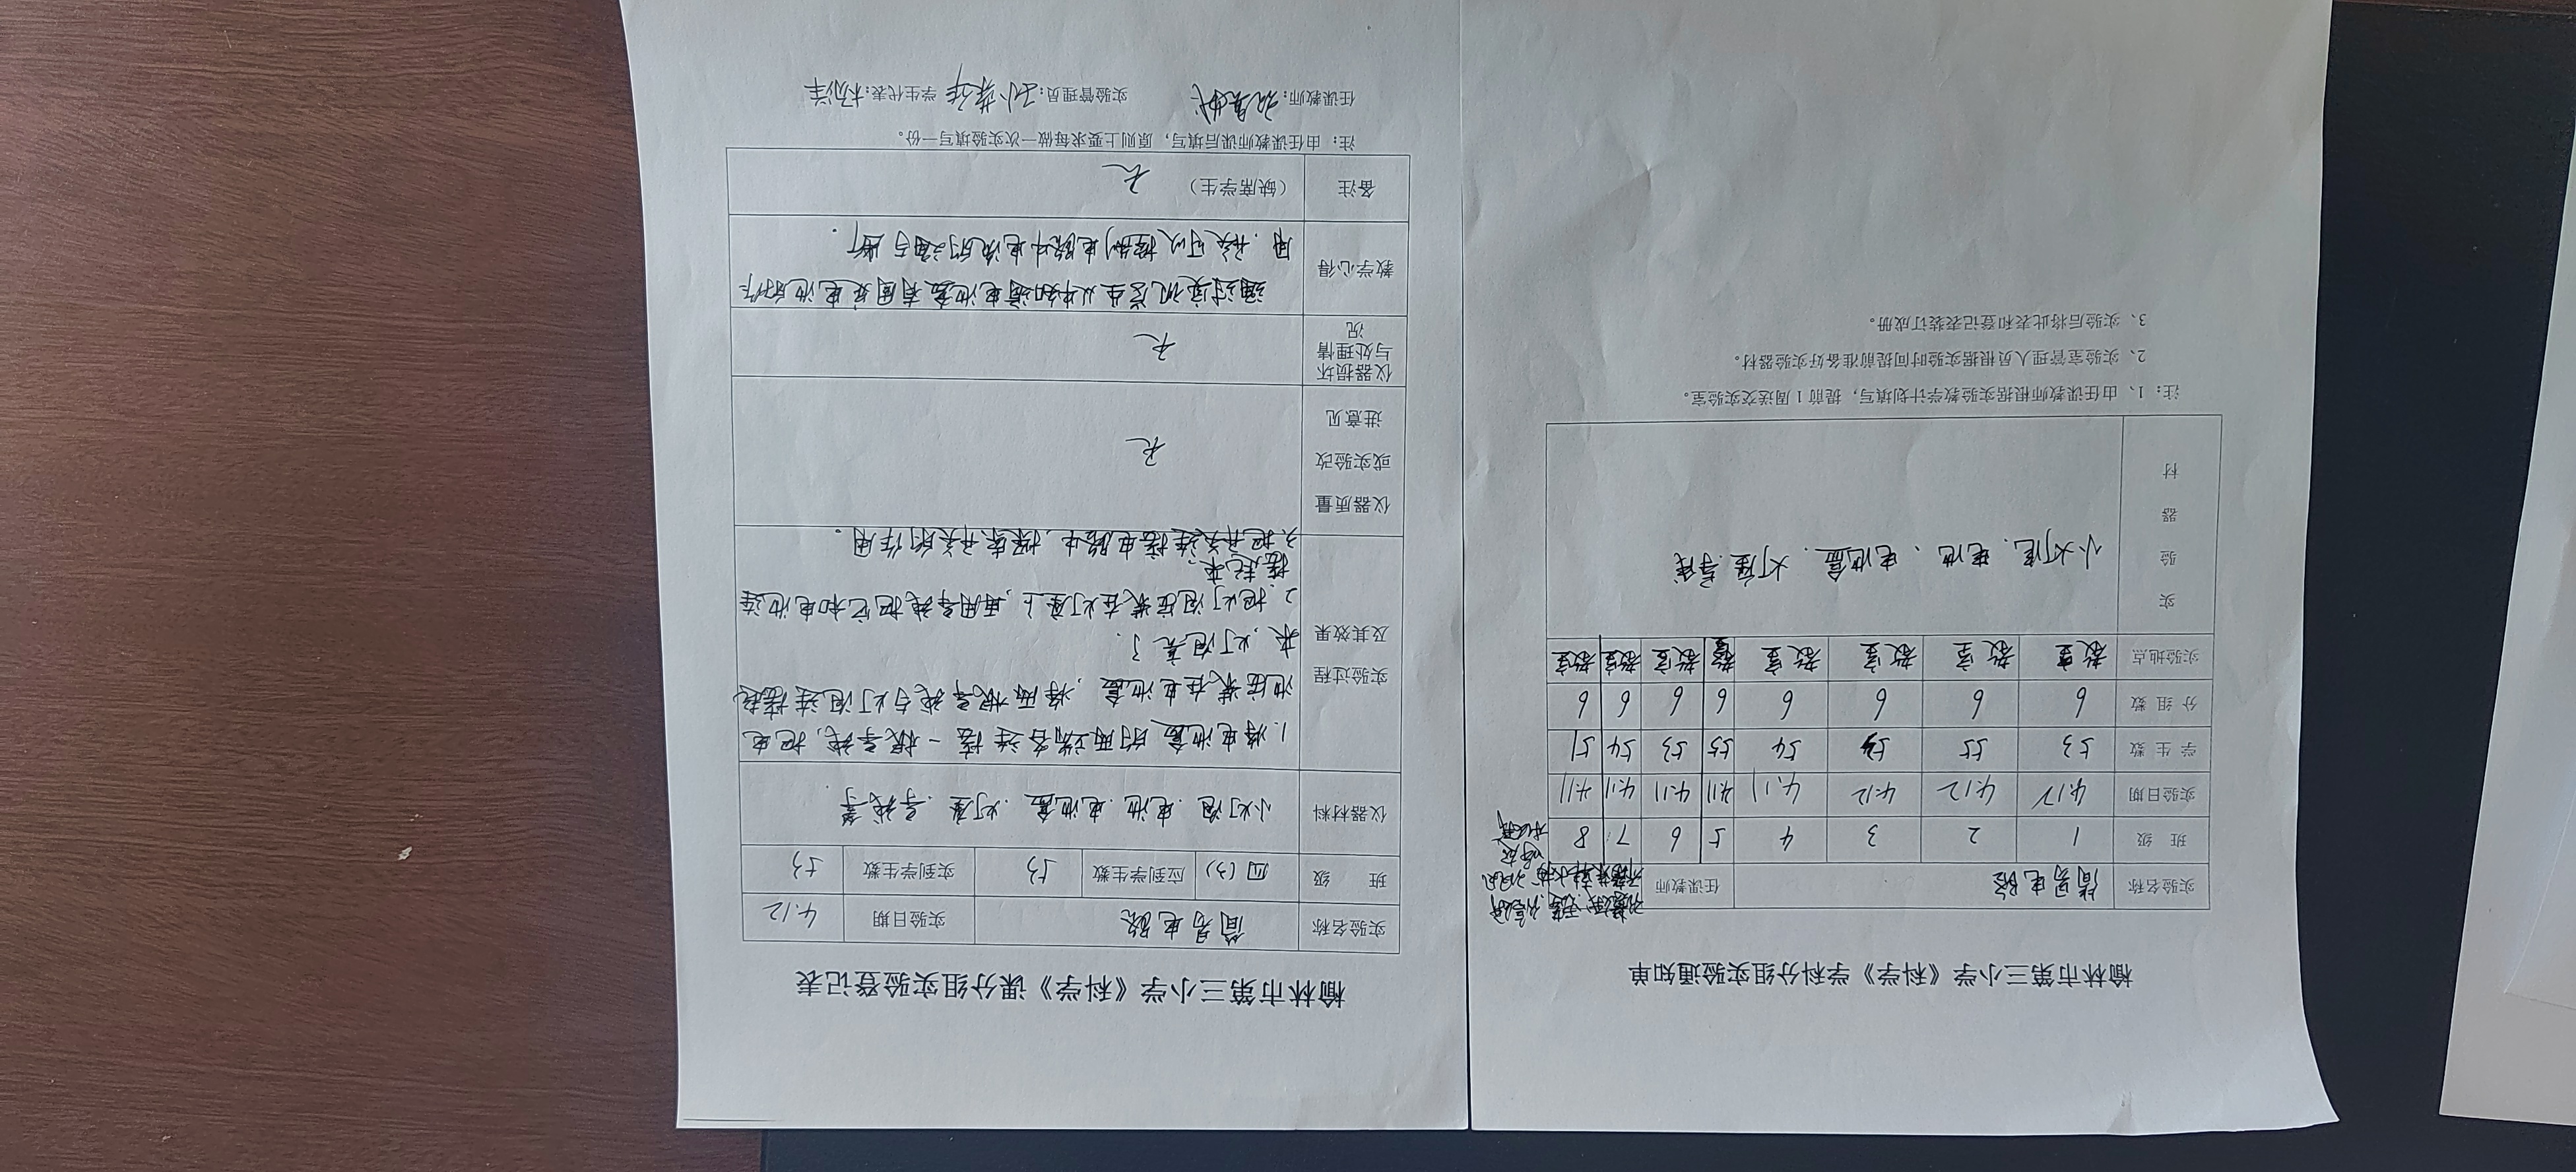 榆林市第三小学《科学》学科分组实验通知单
实验名称 简易电路 任课教师
班 级 1 2 3 4 5 6 7 8
实验日期 4.12 4.12 4.12 4.11 4.11 4.11 4.11 4.11
学 生 数 53 55 54 55 53 54 51
分 组 数 6 6 6 6 6 6 6 6
实验地点 教室 教室 教室 教室 教室 教室 教室 教室
实 验 器 材 小灯泡、电池、电池盒、灯座、导线
注：1、由任课教师根据实验教学计划填写，提前1周送交实验室。
2、实验室管理人员根据实验时间提前准备好实验器材。
3、实验后将此表和登记表装订成册。
榆林市第三小学《科学》课分组实验登记表
实验名称 简易电路 实验日期 4.12
班 级 四(3) 应到学生数 53 实到学生数 53
仪器材料 小灯泡、电池、电池盒、灯座、导线等
实验过程及其效果
1.将电池盒的两端各连接一根导线，把电
池安装在电池盒，将两根导线与灯泡连接起
来，灯泡亮了。
2.把灯泡安装在灯座上，再用导线把它和电池连
接起来。
3.把开关连接电路中，探索开关的作用。
仪器质量或实验改进意见 无
仪器损坏与处理情况 无
教学心得
通过实验学生认知道电池盒有固定电池的作
用，开关可以控制电路中电流的通与断。
备注 （缺席学生） 无
注：由任课教师课后填写，原则上要求每做一次实验填写一份。
任课教师： 实验管理员： 学生代表：杨洋